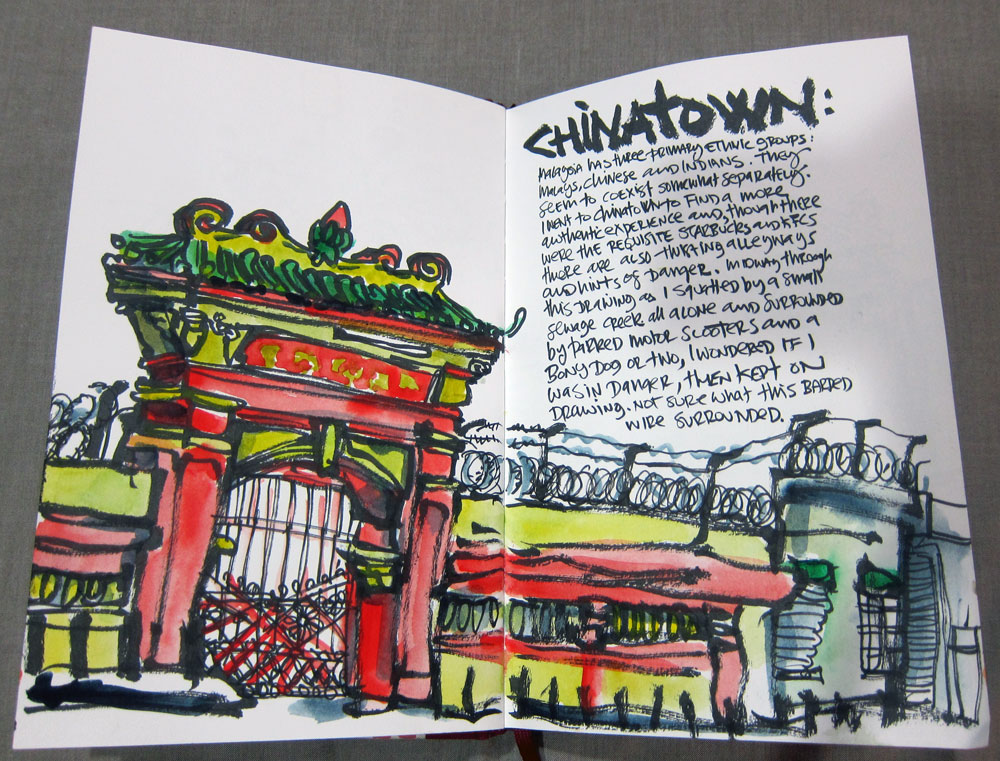 CHINATOWN:
MALAYSIA HAS THREE PRIMARY ETHNIC GROUPS:
MALAYS, CHINESE AND INDIANS. THEY
SEEM TO COEXIST SOMEWHAT SEPARATELY.
I WENT TO CHINATOWN TO FIND A MORE
AUTHENTIC EXPERIENCE AND, THOUGH THERE
WERE THE REQUISITE STARBUCKS AND KFCS
THERE ARE ALSO THURTING ALLEYWAYS
AND HINTS OF DANGER. MIDWAY THROUGH
THIS DRAWING AS I SQUATTED BY A SMALL
SEWAGE CREEK ALL ALONE AND SURROUNDED
BY PARKED MOTOR SCOOTERS AND A
BONY DOG OR TWO, I WONDERED IF I
WAS IN DANGER, THEN KEPT ON
DRAWING. NOT SURE WHAT THIS BARBED
WIRE SURROUNDED.